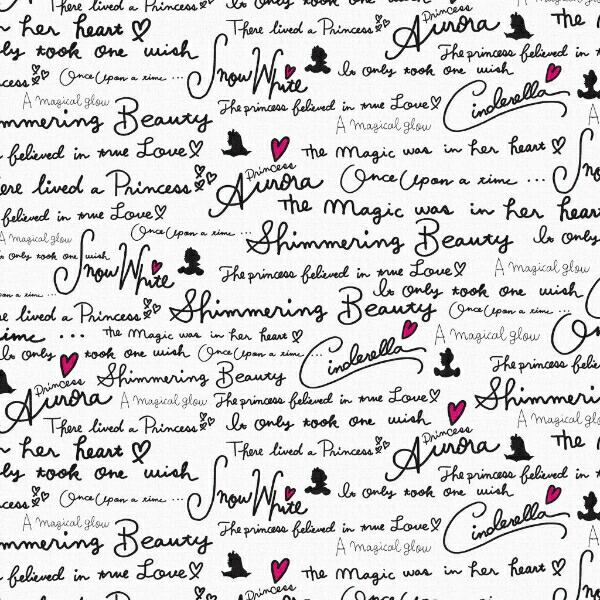 There lived a Princess
There lived a Princess
Princess
Aurora
The
n her heart
ly took one wish
The princess believed in
cess
Once Upon a time ...
Snow White
It only took one wish
A magical glow
The princess believed in true Love
Cinderella
mmering Beauty
A magical glow
believed in true Love
The Magic was in her heart
Princess
Aurora
ere lived a Princess
Once Upon a time ...
The Magic was in her heart
believed in true Love
Once Upon a time ...
A magical glow
Shimmering Beauty
It only
only took one wish
Snow White
The princess believed in true Love
A magical glow
It only took one wish
on a time ...
e lived a Princess
Shimmering Beauty
Once Upon a time ...
time ...
The Magic was in her heart
A magical glow
It only took one wish
Once Upon a time ...
Cinderella
The princess believed
There lived
Princess
Aurora
Shimmering Beauty
A magical glow
The princess believed in true Love
Shimmeri
There lived a Princess
It only took one wish
A magical glow
n her heart
There lived a Princess
Princess
Aurora
The
ly took one wish
The princess believed in
cess
Once Upon a time ...
Snow White
It only took one wish
A magical glow
The princess believed in true Love
Cinderella
mmering Beauty
A magical glow
believed in true Love
The Magic was in her heart
Princess